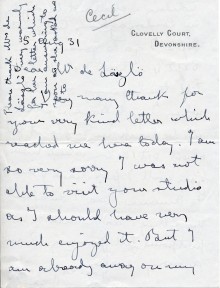 Cecil
CLOVELLY COURT,
DEVONSHIRE.
5. 8. 31
Dear Mr de László
Very many thanks for
your very kind letter which
reached me here today. I am
so very sorry I was not
able to visit your studio
as I should have very
much enjoyed it. But I
am already away on my